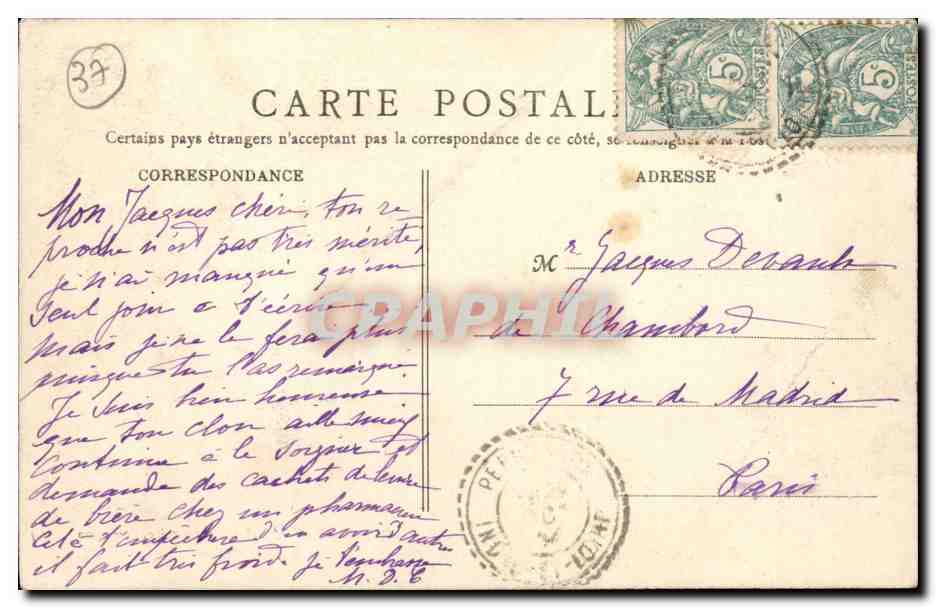 37
CARTE POSTALE
Certains pays étrangers n'acceptent pas la correspondance de ce côté, se renseigner à la Pos
CORRESPONDANCE
Mon Jacques chéri, ton re
proche n'est pas très mérité,
je n'ai manqué qu'un
seul jour à t'écrire
mais je ne le ferai plus
puisque tu l'as remarqué.
Je suis bien heureuse
que ton clou aille mieux
continue à le soigner et
demande des cachets de levure
de bière chez un pharmacien
cela t'empêchera d'en avoir d'autres
il fait très froid. je t'embrasse
M. D. C
ADRESSE
Mr Jacques Devault
de Chambord
7 rue de Madrid
Paris
5c
POSTES
5c
POSTES
CRAPHIL